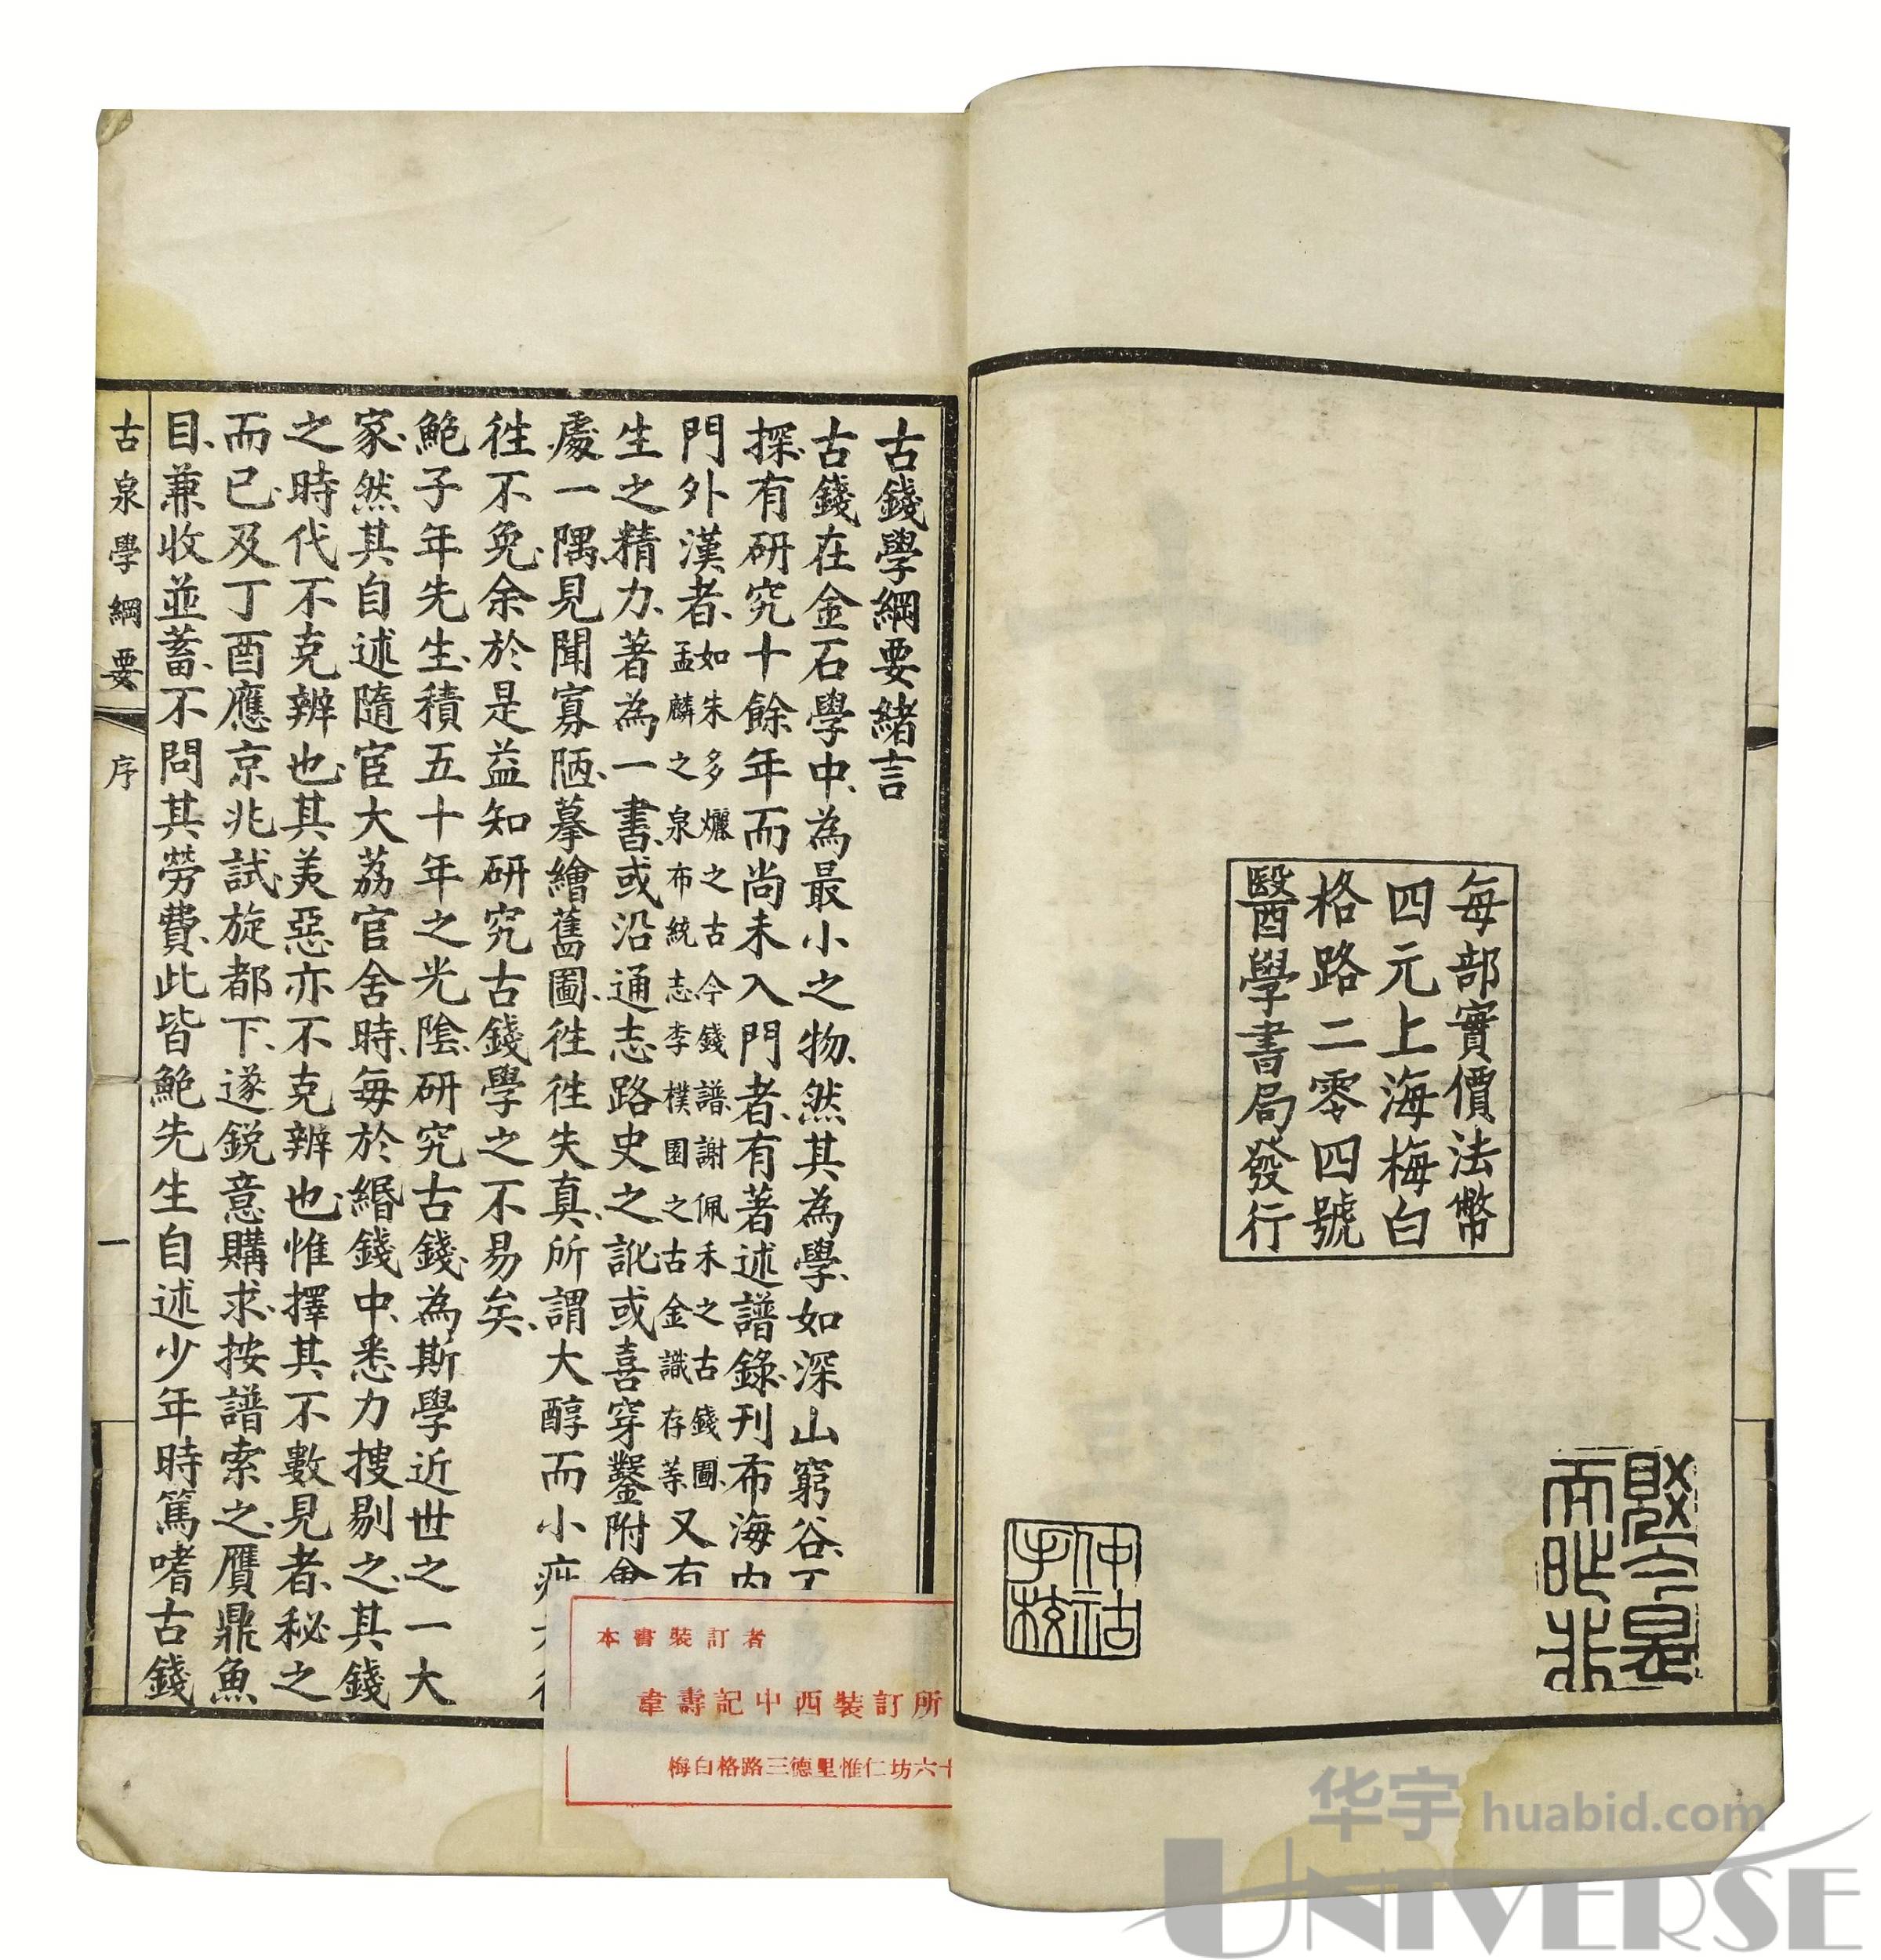 每部實價法幣
四元上海梅白
格路二零四號
醫學書局發行
覺今是
而昨非
仲祜
手校
古錢學綱要緒言
古錢在金石學中、為最小之物、然其為學、如深山窮谷、
探、有研究十餘年而尚未入門者、有著述譜錄、刊布海内
門外漢者、如朱多爜之古今錢譜、謝佩禾之古錢圖、孟麟之泉布統志、李樸園之古金識存等、又有
生之精力、著為一書、或沿通志路史之訛、或喜穿鑿附會
處一隅、見聞寡陋、摹繪舊圖、徃徃失真、所謂大醇而小疵
徃不免、余於是益知研究古錢學之不易矣、
鮑子年先生、積五十年之光陰、研究古錢、為斯學近世之一大
家、然其自述隨宦大荔官舍時、每於緡錢中、悉力搜剔之、其錢
之時代不克辨也、其美惡亦不克辨也、惟擇其不數見者、秘之
而已、及丁酉應京兆試、旋都下、遂銳意購求、按譜索之、贋鼎魚
目、兼收並蓄、不問其勞費、此皆鮑先生自述少年時篤嗜古錢
古泉學綱要
序
一
本書裝訂者
韋壽記中西裝訂所
梅白格路三德里惟仁坊六十
华宇 huabid.com
UNIVERSE